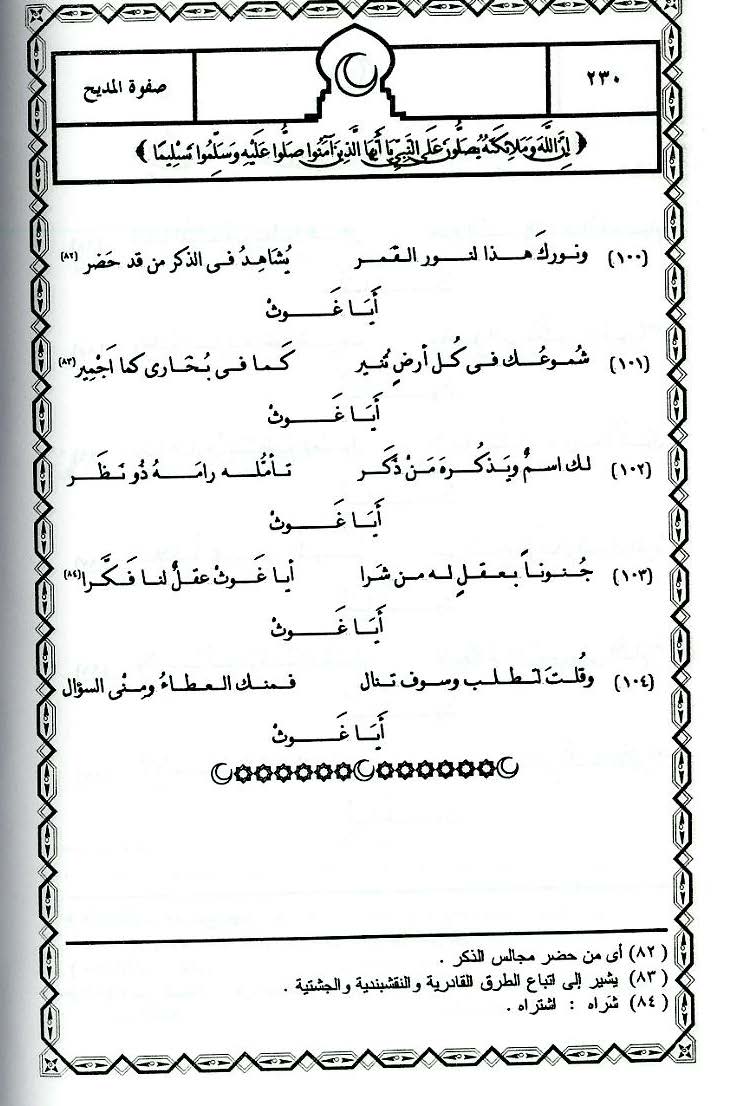 ٢٣٠ صفوة المديح
﴿ إِنَّ اللَّهَ وَمَلَائِكَتَهُ يُصَلُّونَ عَلَى النَّبِيِّ يَا أَيُّهَا الَّذِينَ آمَنُوا صَلُّوا عَلَيْهِ وَسَلِّمُوا تَسْلِيمًا ﴾
(١٠٠) ونوركَ هذا لنور القمر يُشاهِدُ فى الذكر من قد حَضر (٨٢)
أَيَا غَوثْ
(١٠١) شُموعُك فى كُل أرضٍ تُنير كَما فى بُخارى كما اَجْمِير (٨٣)
أَيَا غَوثْ
(١٠٢) لك اسمٌ ويَذكُره مَنْ ذَكَر تأمُّله رامَهُ ذُو نَظَر
أَيَا غَوثْ
(١٠٣) جُنوناً بعقلٍ له من شَرا أيا غَوثْ عقلٌ لنا فَكَّرا (٨٤)
أَيَا غَوثْ
(١٠٤) وقُلتَ لتطلب وسوف تنال فمنك العطاءُ ومِنْى السؤال
أَيَا غَوثْ
(٨٢) أى من حضر مجالس الذكر .
(٨٣) يشير إلى اتباع الطرق القادرية والنقشبندية والجشتية .
(٨٤) شَراه : اشتراه .